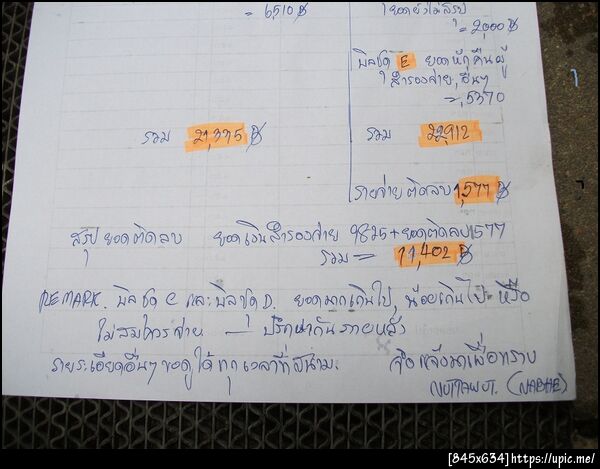 = 6,510 ฿
ยอดยังไม่สรุป
= 2,000 ฿
บิลชุด E ยอดหักคืนผู้
สำรองจ่าย, อื่นๆ
= 5370
รวม 21,335 ฿
รวม 22,912
รายจ่ายติดลบ 1,577 ฿
สรุป ยอดติดลบ ยอดเงินสำรองจ่าย 9825 + ยอดติดลบ 1577
รวม = 11,402 ฿
REMARK. บิลชุด C และบิลชุด D. ยอดมากเกินไป, น้อยเกินไป หรือ
ไม่สมควรจ่าย — ปรึกษากันภายหลัง
รายระเอียดอื่นๆ ขอดูได้ทุกเวลาที่สนาม. จึงแจ้งมาเพื่อทราบ
NUTTAWUT. (NABHE)
[845x634]https://upic.me/